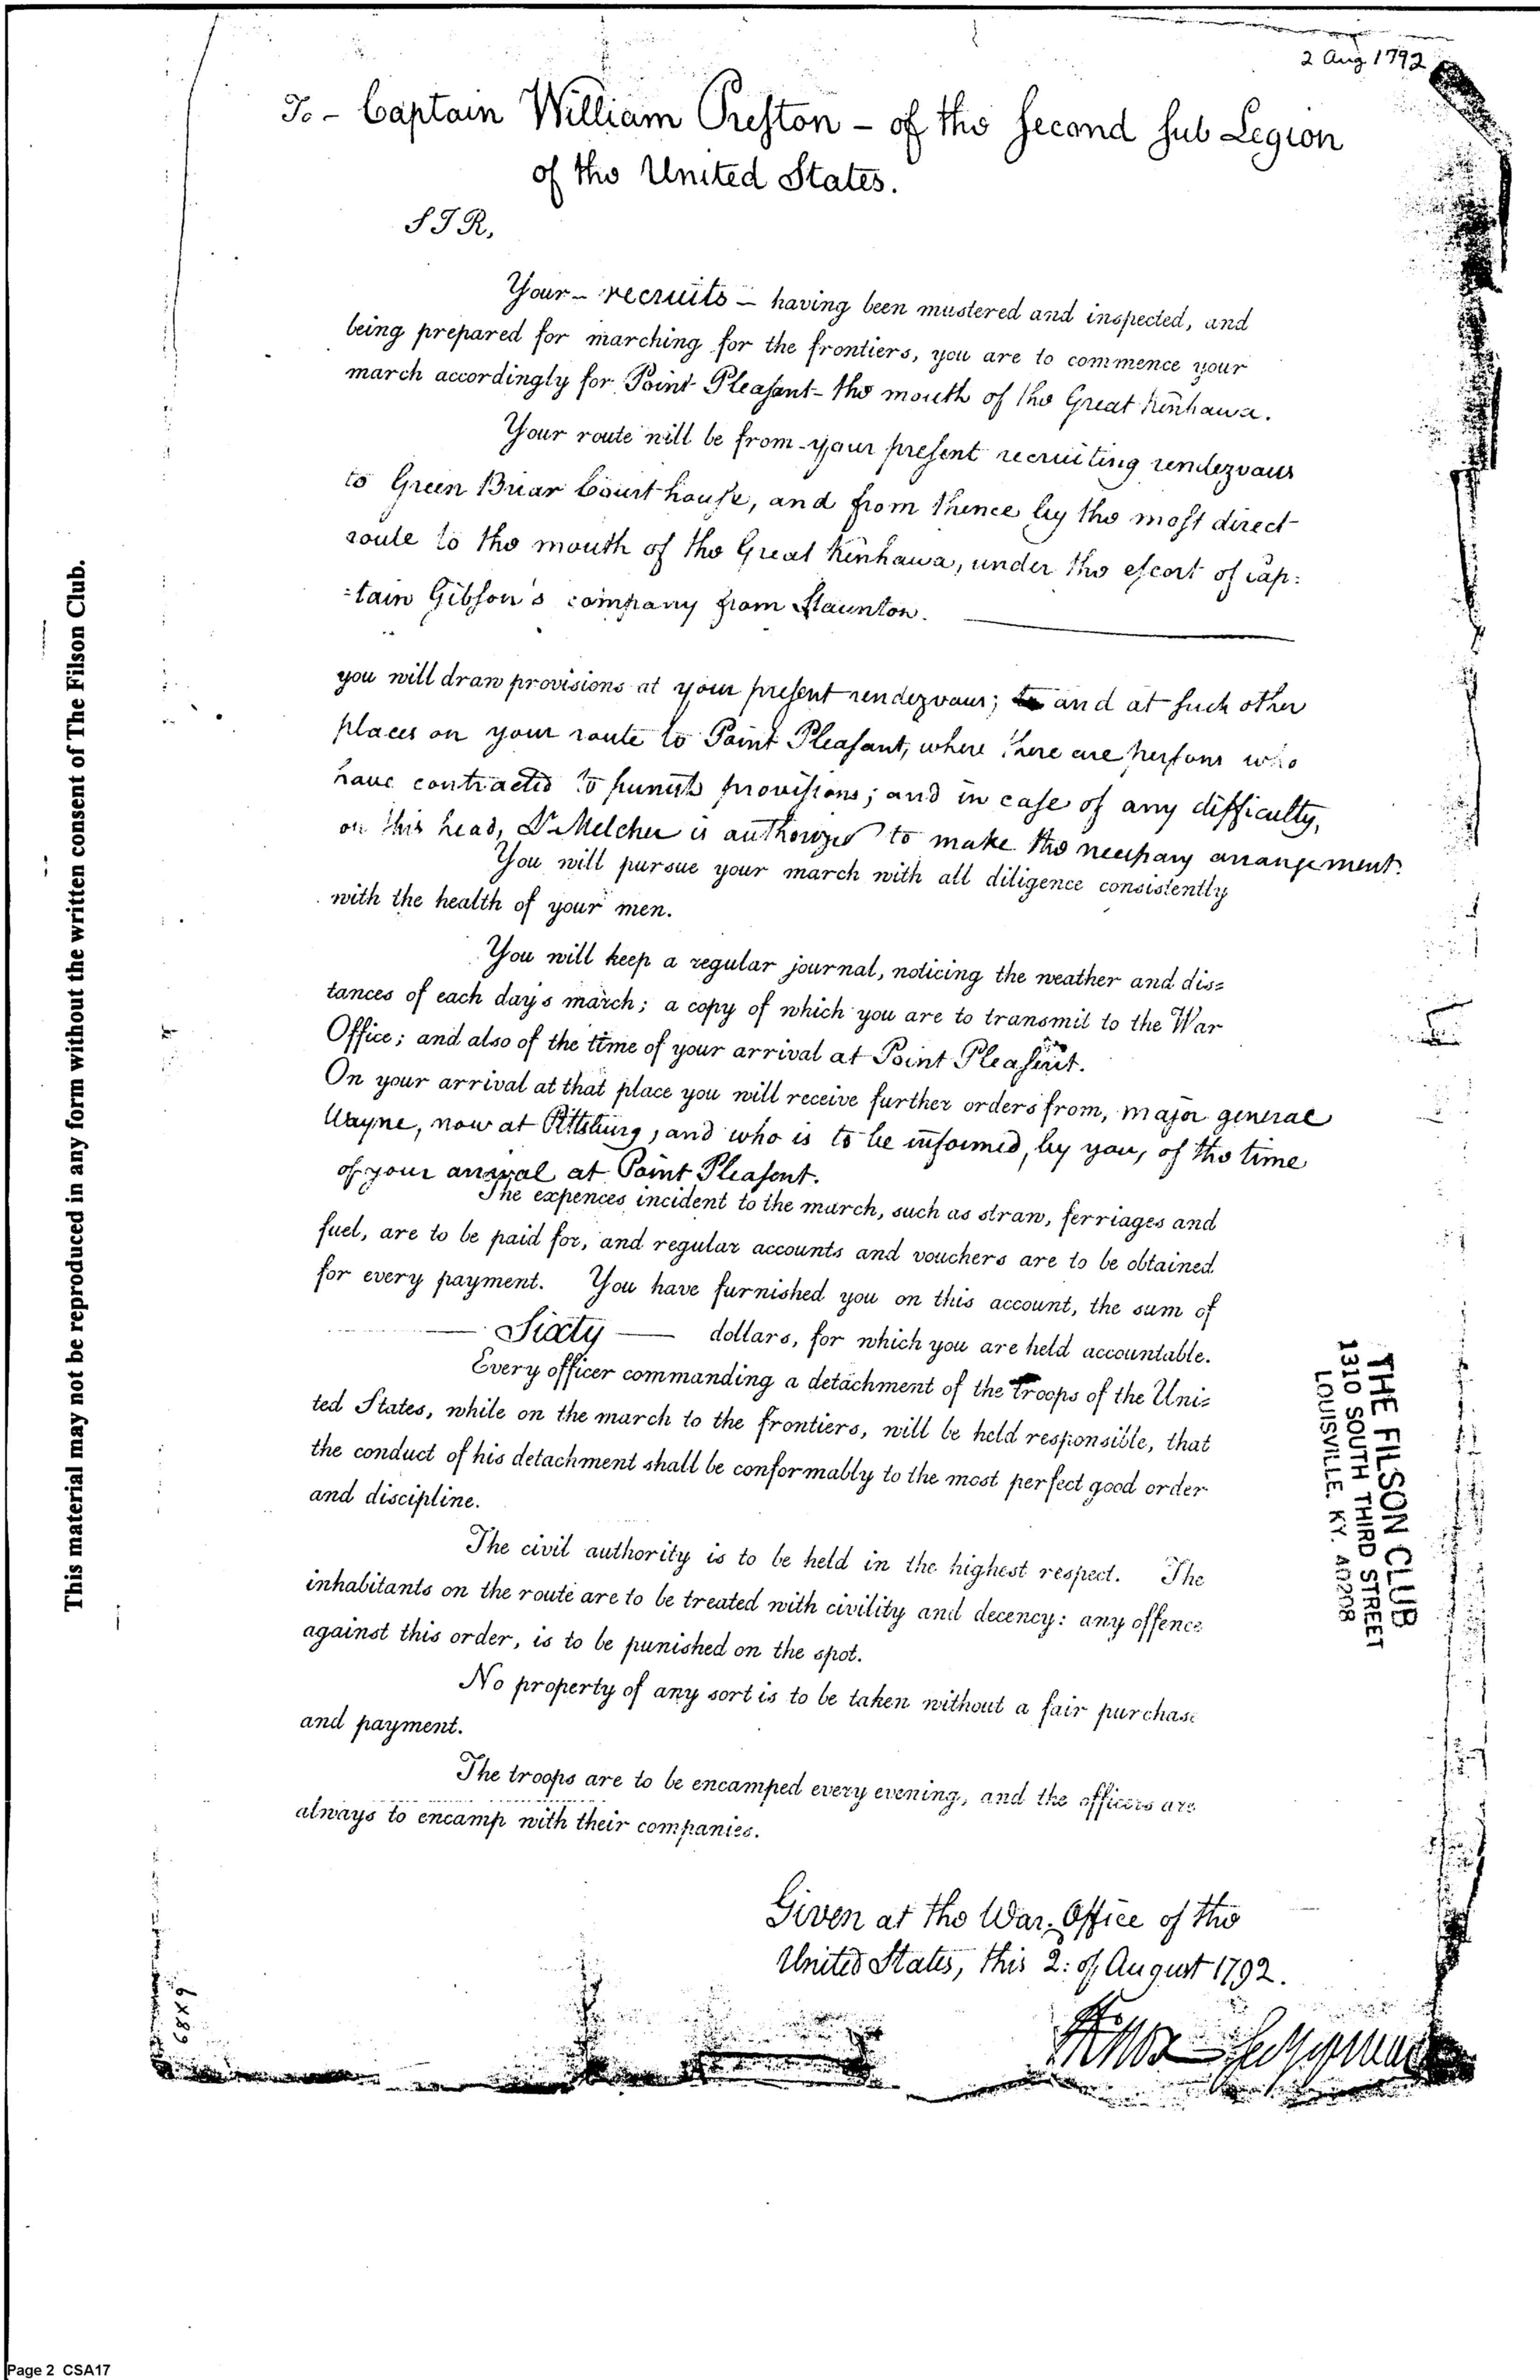 2 Aug 1792
To - Captain William Preston - of the Second Sub Legion
of the United States.
SIR,
Your - recruits - having been mustered and inspected, and
being prepared for marching for the frontiers, you are to commence your
march accordingly for Point Pleasant - the mouth of the Great Kenhawa.
Your route will be from your present recruiting rendezvous
to Green Briar Court house, and from thence by the most direct
route to the mouth of the Great Kenhawa, under the escort of cap:
:tain Gibson's company from Staunton.
you will draw provisions at your present rendezvous; and at such other
places on your route to Point Pleasant, where there are persons who
have contracted to furnish provisions; and in case of any difficulty,
on this head, Mr Melcher is authorized to make the necessary arrangement.
You will pursue your march with all diligence consistently
with the health of your men.
You will keep a regular journal, noticing the weather and dis=
tances of each day's march; a copy of which you are to transmit to the War
Office; and also of the time of your arrival at Point Pleasent.
On your arrival at that place you will receive further orders from, major general
Wayne, now at Pittsburg, and who is to be informed, by you, of the time
of your arrival at Point Pleasent.
The expences incident to the march, such as straw, ferriages and
fuel, are to be paid for, and regular accounts and vouchers are to be obtained
for every payment. You have furnished you on this account, the sum of
Sixty dollars, for which you are held accountable.
Every officer commanding a detachment of the troops of the Uni=
ted States, while on the march to the frontiers, will be held responsible, that
the conduct of his detachment shall be conformably to the most perfect good order
and discipline.
The civil authority is to be held in the highest respect. The
inhabitants on the route are to be treated with civility and decency: any offence
against this order, is to be punished on the spot.
No property of any sort is to be taken without a fair purchase
and payment.
The troops are to be encamped every evening, and the officers are
always to encamp with their companies.
Given at the War Office of the
United States, this 2: of August 1792.
HKnox Secy of War
This material may not be reproduced in any form without the written consent of The Filson Club.
THE FILSON CLUB
1310 SOUTH THIRD STREET
LOUISVILLE, KY. 40208
6x89
Page 2 CSA17